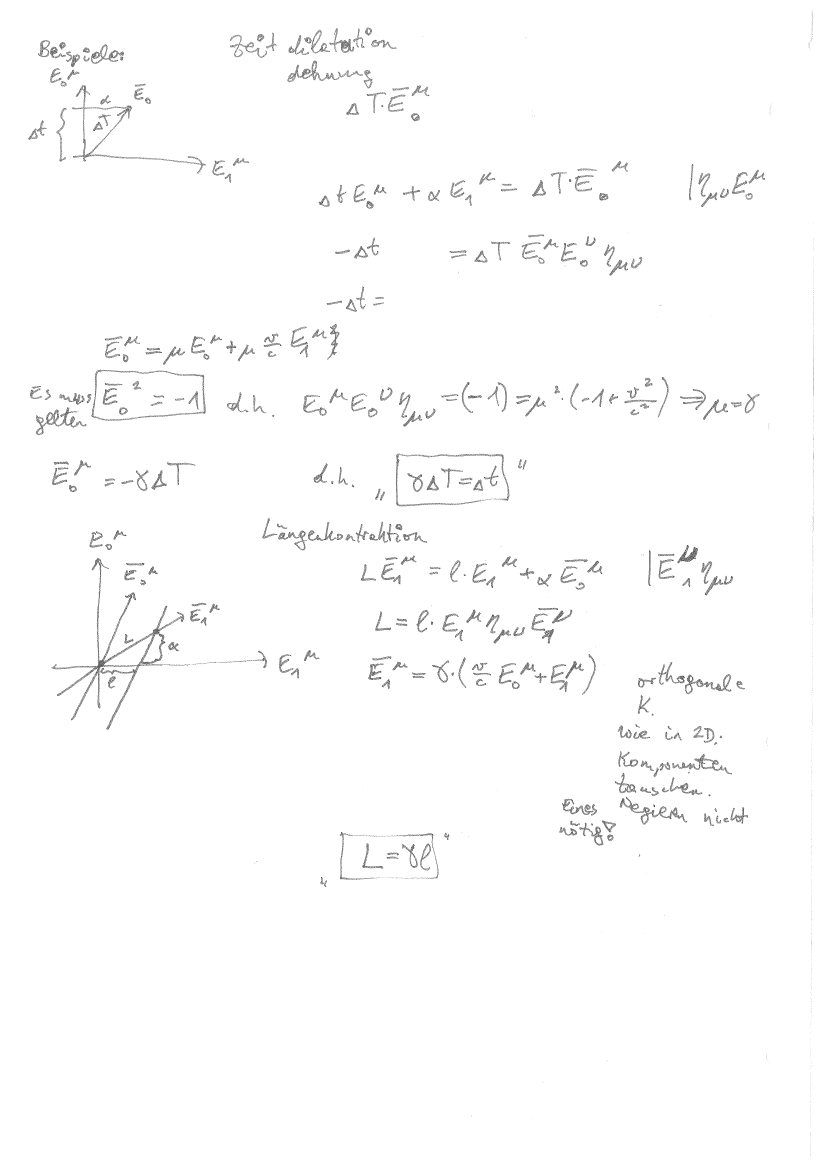 Beispiele:
Zeit dilatation
dehnung
E₀^μ
Ē₀
α
ΔT
Δt
E₁^μ
ΔT·Ē₀^μ
Δt E₀^μ + α E₁^μ = ΔT·Ē₀^μ |η_μν E₀^μ
-Δt = ΔT Ē₀^μ E₀^ν η_μν
-Δt =
Ē₀^μ = μ E₀^μ + μ v/c E₁^μ
Es muss gelten Ē₀² = -1 d.h. E₀^μ E₀^ν η_μν = (-1) = μ²·(-1 + v²/c²) ⇒ μ = γ
Ē₀^μ = -γΔT d.h. „ γΔT = Δt "
Längenkontraktion
E₀^μ
Ē₀^μ
Ē₁^μ
L
α
l
E₁^μ
L Ē₁^μ = l·E₁^μ + α Ē₀^μ |Ē₁^ν η_μν
L = l·E₁^μ η_μν Ē₁^ν
Ē₁^μ = γ·(v/c E₀^μ + E₁^μ)
orthogonale
K.
wie in 2D:
Komponenten
tauschen.
Eines Negieren nicht
nötig!
„ L = γl "